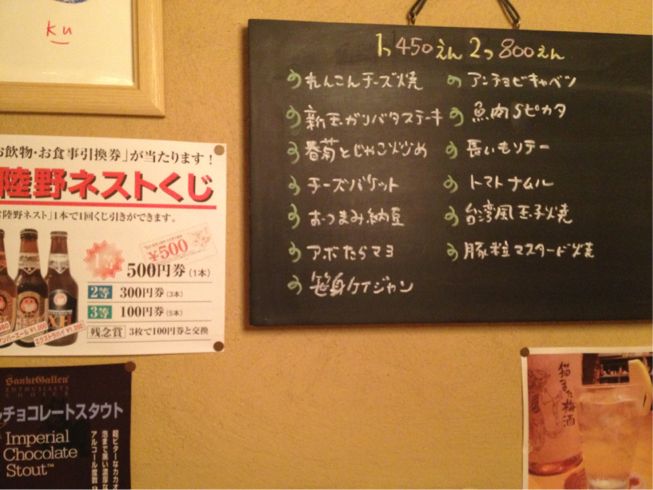 ku
1つ450えん 2つ800えん
れんこんチーズ焼
新玉ガリバタステーキ
春菊とじゃこ炒め
チーズバケット
おつまみ納豆
アボたらマヨ
笹身ケイジャン
アンチョビキャベツ
魚肉Sピカタ
長いもソテー
トマトナムル
台湾風玉子焼
豚粒マスタード焼
お飲物・お食事引換券」が当たります!
陸野ネストくじ
陸野ネスト」1本で1回くじ引きができます。
¥500
500円券(1本)
2等 300円券(3本)
3等 100円券(5本)
残念賞 3枚で100円券と交換
SanktGallen
チョコレートスタウト
Imperial
Chocolate
Stout™
超ビターなカカオ
泡まで黒い濃厚な
アルコール度数
猫また梅酒